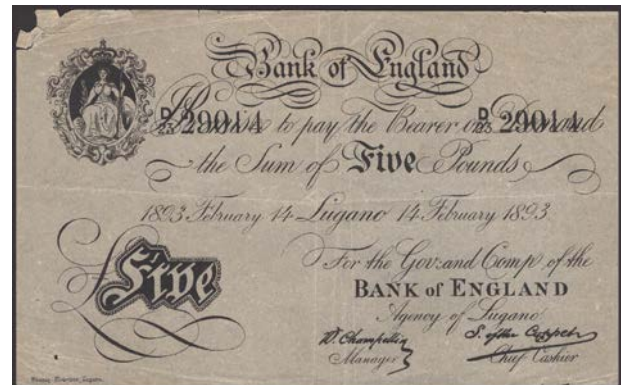 Bank of England
D/23 29014 I Promise to pay the Bearer on Demand D/23 29014
the Sum of Five Pounds
1893 February 14 Lugano 14 February 1893
For the Gov: and Comp of the
Five
BANK of ENGLAND
Agency of Lugano
Manager
Chief Cashier